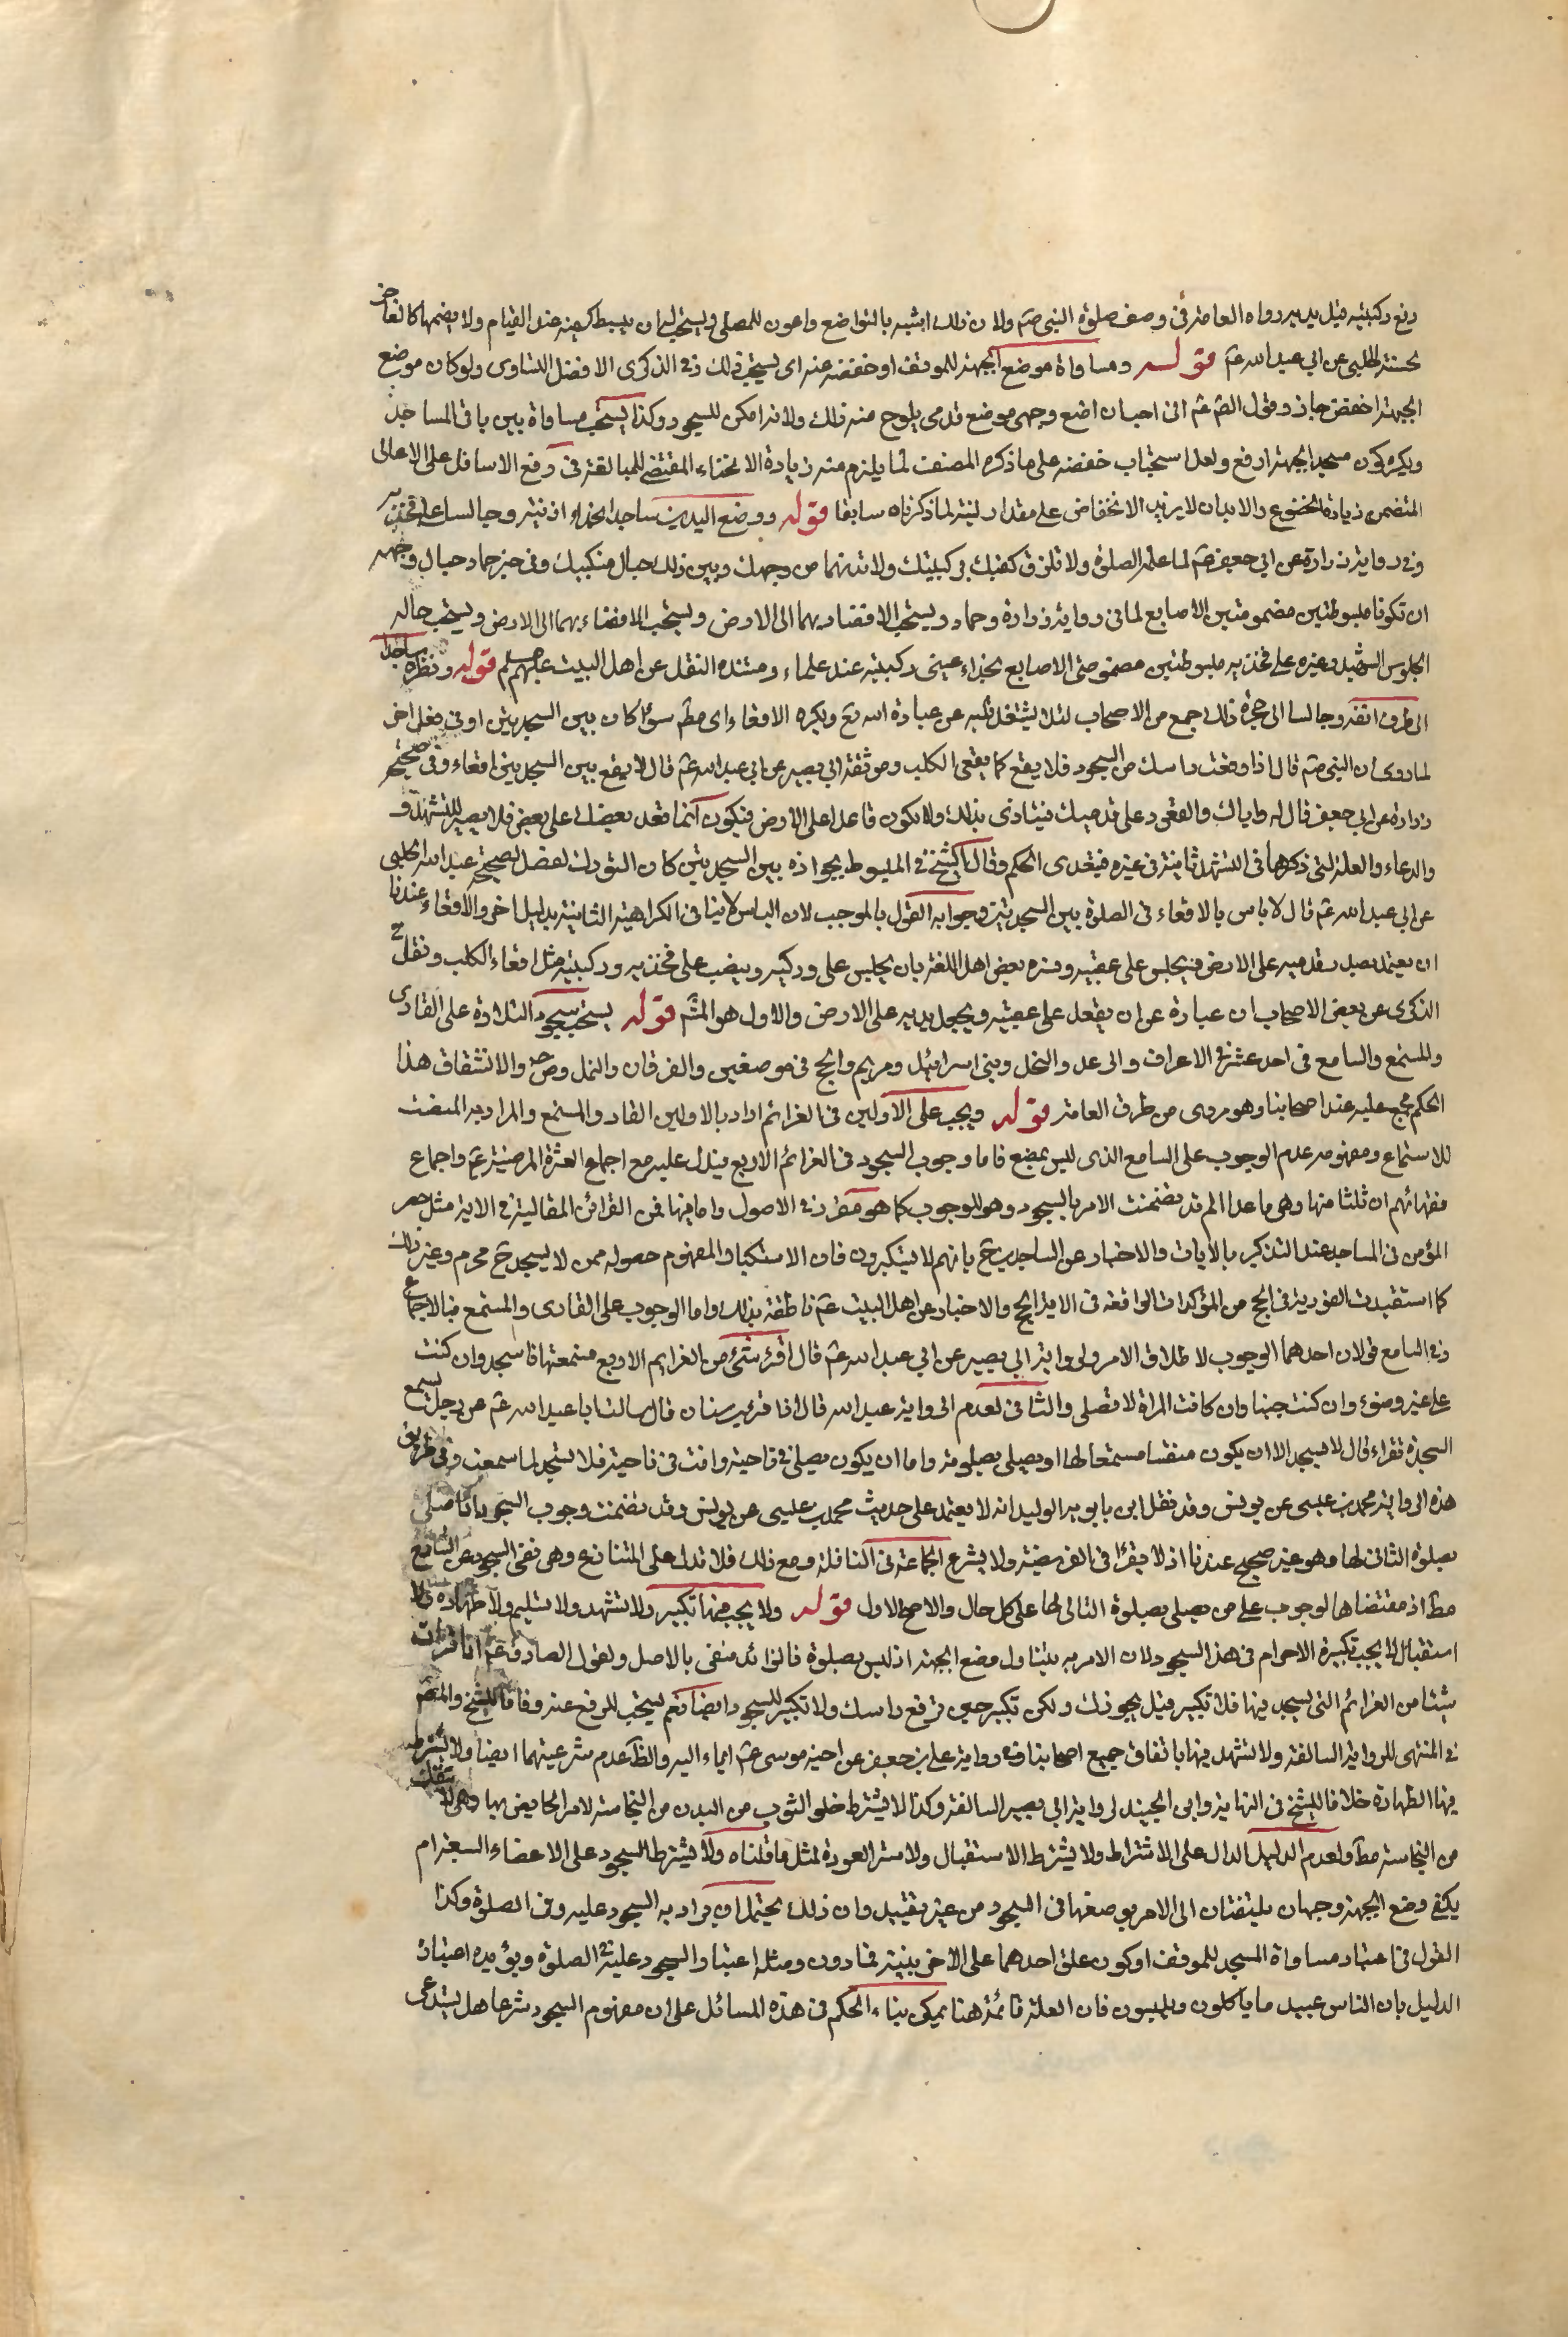 رفع ركبتيه قبل يديه رواه العامة فى وصف صلوة النبى صم ولان ذلك اشبه بالتواضع واعون للمصلى ويستحب له ان يبسط كفيه عند القيام ولا يضمها كالعاجن
لحسنة الحلبى عن ابي عبد الله عم قوله ومساواة موضع الجبهة للموقف او خفضه عنه اى يستحب ذلك وفى الذكرى الافضل التساوى ولو كان موضع
الجبهة اخفض جاز وقول الصم عم انى احب ان اضع وجهى موضع قدمى يلوح منه ذلك ولانه امكن للسجود وكذا يستحب مساواة بين باقى المساجد
ويكره كون مسجد الجبهة ارفع ولعل استحباب خفضه على ما ذكره المصنف لما يلزم منه زيادة الانحناء المقتضى للمبالغة فى رفع الاسافل على الاعالى
المتضمن زيادة الخضوع والا بدان لا يزيد الانخفاض على مقدار لبنة لما ذكرناه سابقا قوله ووضع اليدين ساجدا بحذاء اذنيه وجالسا على فخذيه
وفى رواية زرارة عن ابي جعفر عم لما علمه الصلوة ولا تلزق كفيك بركبتيك ولا تدنهما من وجهك وبين ذلك حيال منكبيك وفى خبر حماد حيال وجهه
ان تكونا مبسوطتين مضمومتين الاصابع لما فى رواية زرارة وحماد ويستحب الافضاء بهما الى الارض ويستحب الافضاء بهما الى الارض ويستحب حاله
الجلوس لتشهد وغيره على فخذيه مبسوطتين مضمومتى الاصابع بحذاء عينى ركبتيه عند علماء ومستنده النقل عن اهل البيت عليهم سلم قوله ونظره ساجدا
الى طرف انفه وجالسا الى حجره ذلك جمع من الاصحاب لئلا يشتغل قلبه عن عبادة الله تع ويكره الاقعاء اى مطم سواء كان بين السجدتين او فى فعل اخر
لما روى ان النبى صم قال اذا رفعت راسك من السجود فلا تقع كما يقعى الكلب وموثقة ابي بصير عن ابي عبد الله عم قال لا تقع بين السجدتين اقعاء وفى صحيحة
زرارة عن ابي جعفر قال له واياك والقعود على قدميك فتتاذى بذلك ولا تكون قاعدا على الارض فتكون انما قعد بعضك على بعض فلا تصبر للتشهد و
والدعاء والعلة التى ذكرها فى التشهد ثابتة فى غيره فيتعدى الحكم وقال الشيخ فى المبسوط بجوازه بين السجدتين كان التورك افضل لصحيحة عبد الله الحلبى
عن ابي عبد الله عم قال لا باس بالاقعاء فى الصلوة بين السجدتين وجوابه القول بالموجب لان الباس لا ينافى الكراهية الثابتة بدليل اخر والاقعاء عندنا
ان يعتمد بصدر قدميه على الارض فيجلس على عقبيه وفسره بعض اهل اللغة بان يجلس على وركيه وينصب على فخذيه وركبتيه مثل اقعاء الكلب ونقل فى
الذكرى عن بعض الاصحاب ان عبارة عن ان يقعد على عقبيه ويجعل يديه على الارض والاول هو المشم قوله يستحب سجود التلاوة على القارى
والمستمع والسامع فى احد عشر فى الاعراف والرعد والنحل وبنى اسرائيل ومريم والحج فى موضعين والفرقان والنمل وص والانشقاق هذا
الحكم مجمع عليه عند اصحابنا وهو مروى من طرق العامة قوله ويجب على الاولين فى العزائم اراد بالاولين القارى والمستمع والمراد به المنصت
للاستماع ومفهومه عدم الوجوب على السامع الذى ليس بمصغ فاما وجوب السجود فى العزائم الاربع فيدل عليه مع اجماع العترة المرضية عم واجماع
فقهائهم ان ثلثا منها وهى ما عدا الم قد تضمنت الامر بالسجود وهو للوجوب كما هو مقرر فى الاصول واما فيها فمن القرائن المقالية فى الاية مثل حصر
المؤمن فى المساجد عند التذكير بالايات والاخبار عن الساجدين تع بانهم لا يستكبرون فان الاستكبار المفهوم حصوله ممن لا يسجد تع محرم وغير ذلك
كما استفيدت الفورية فى الحج من المؤكدات الواقعة فى الاية الحج والاخبار عن اهل البيت عم ناطقة بذلك واما الوجوب على القارى والمستمع فبالاجماع
وفى السامع قولان احدهما الوجوب لاطلاق الامر ولرواية ابي بصير عن ابي عبد الله عم قال اذا قرئ شئ من العزايم الاربع فسمعتها فاسجد وان كنت
على غير وضوء وان كنت جنبا وان كانت المراة لا تصلى والثانى لعدم الى رواية عبد الله قال انا قريب سنان قال سالت ابا عبد الله عم عن رجل سمع
السجدة تقراء قال لا يسجد الا ان يكون منصتا مستمعا لها او يصلى بصلوته واما ان يكون يصلى فى ناحية وانت فى ناحية فلا تسجد لما سمعت وفى طريق
هذه الرواية محمد بن عيسى عن يونس وقد نقل ابن بابويه الوليد انه لا يعتمد على حديث محمد بن عيسى عن يونس وقد تضمنت وجوب السجود اذا صلى
بصلوة التالى لها وهو غير صحيح عندنا اذ لا يقرا فى الفريضة ولا يشرع الجماعة فى النافلة ومع ذلك فلا تدل على المتنازع وهى نفى السجود عن السامع
مطم اذ مقتضاها الوجوب على من يصلى بصلوة التالى لها على كل حال والاصح الاول قوله ولا يجب فيها تكبير ولا تشهد ولا تسليم ولا طهارة ولا
استقبال لا يجب تكبيرة الاحرام فى هذا السجود لان الامر به يتناول وضع الجبهة اذ ليس بصلوة فالزائد منفى بالاصل ولقول الصادق عم اذا قرات
شيئا من العزائم التى يسجد فيها فلا تكبر قبل سجودك ولكن تكبر حين ترفع راسك ولا تكبير للسجود ايضا نعم يستحب للرفع عنه وفاقا للشيخ والمصم
فى المنتهى للرواية السالفة ولا تشهد فيها باتفاق جميع اصحابنا وفى رواية على بن جعفر عن اخيه موسى عم ايماء اليه والظم عدم شرعيتهما ايضا ولا يشترط
فيها الطهارة خلافا للشيخ فى النهاية وابن الجنيد لرواية ابي بصير السالفة وكذا لا يشترط خلو الثوب من البدن من النجاسة لامر الحايض بها وهى لا تنفك
من النجاسة مطم ولعدم الدليل الدال على الاشتراط ولا يشترط الاستقبال ولا ستر العورة لمثل ما قلناه ولا يشترط السجود على الاعضاء السبعة ام
يكفى وضع الجبهة وجهان يلتفتان الى الامر بوضعها فى السجود من غير تقييد وان ذلك يحتمل ان يراد به السجود عليه وفى الصلوة وكذا
القول فى اعتبار مساواة المسجد للموقف او كون علو احدهما على الاخر بلبنة فما دون ومثله اعتبار السجود عليه فى الصلوة ويؤيده اعتباره
الدليل بان الناس عبيد ما ياكلون ويلبسون فان العلة قائمة هنا يمكن بناء الحكم فى هذه المسائل على ان مفهوم السجود شرعا هل يستدعى